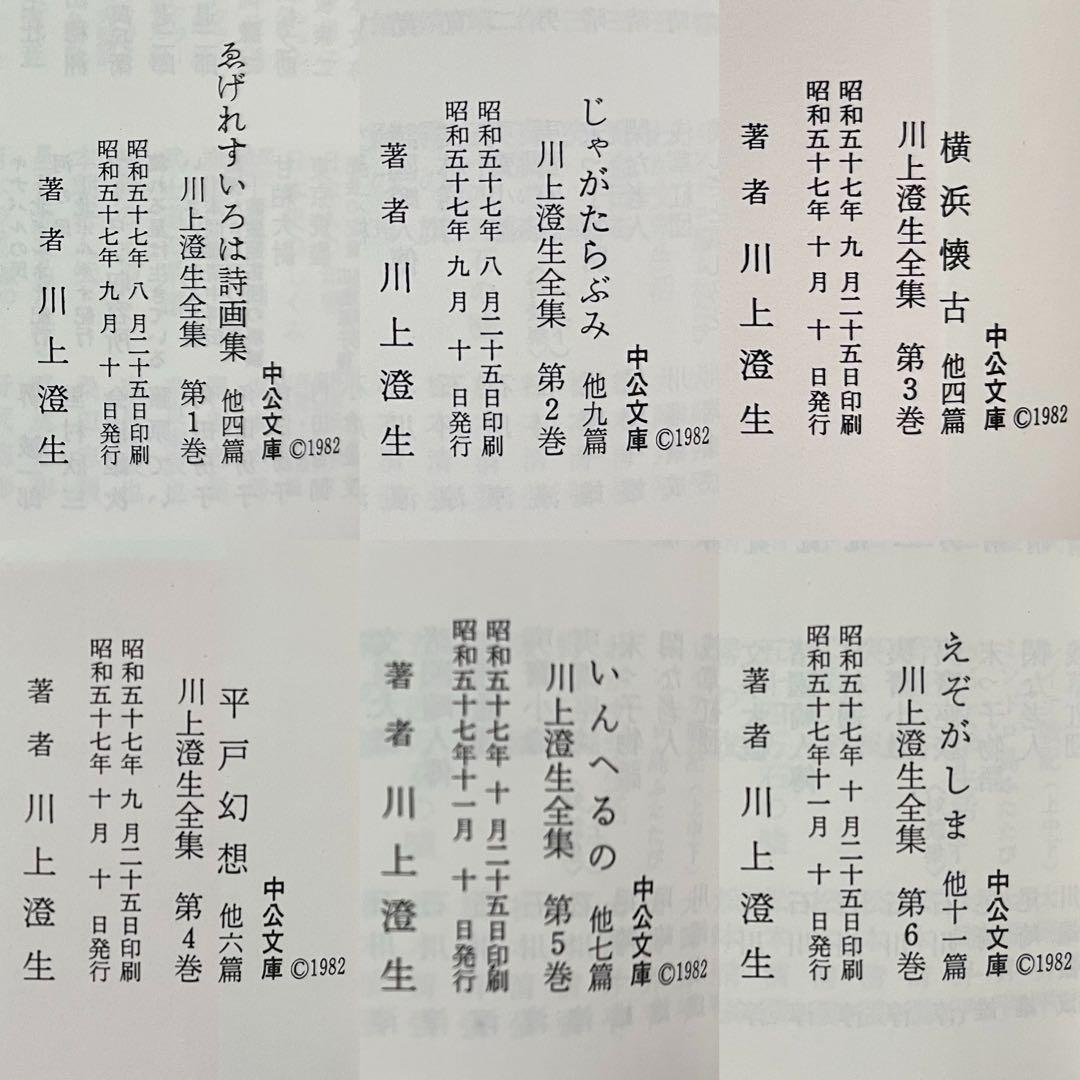 ゑげれすいろは詩画集 他四篇
川上澄生全集 第1巻
中公文庫
©1982
昭和五十七年 八 月二十五日印刷
昭和五十七年 九 月 十 日発行
著者 川上澄生
じゃがたらぶみ 他九篇
川上澄生全集 第2巻
中公文庫
©1982
昭和五十七年 八 月二十五日印刷
昭和五十七年 九 月 十 日発行
著者 川上澄生
横浜懐古 他四篇
川上澄生全集 第3巻
中公文庫
©1982
昭和五十七年 九 月二十五日印刷
昭和五十七年 十 月 十 日発行
著者 川上澄生
平戸幻想 他六篇
川上澄生全集 第4巻
中公文庫
©1982
昭和五十七年 九 月二十五日印刷
昭和五十七年 十 月 十 日発行
著者 川上澄生
いんへるの 他七篇
川上澄生全集 第5巻
中公文庫
©1982
昭和五十七年 十 月二十五日印刷
昭和五十七年十一月 十 日発行
著者 川上澄生
えぞがしま 他十篇
川上澄生全集 第6巻
中公文庫
©1982
昭和五十七年 十 月二十五日印刷
昭和五十七年十一月 十 日発行
著者 川上澄生